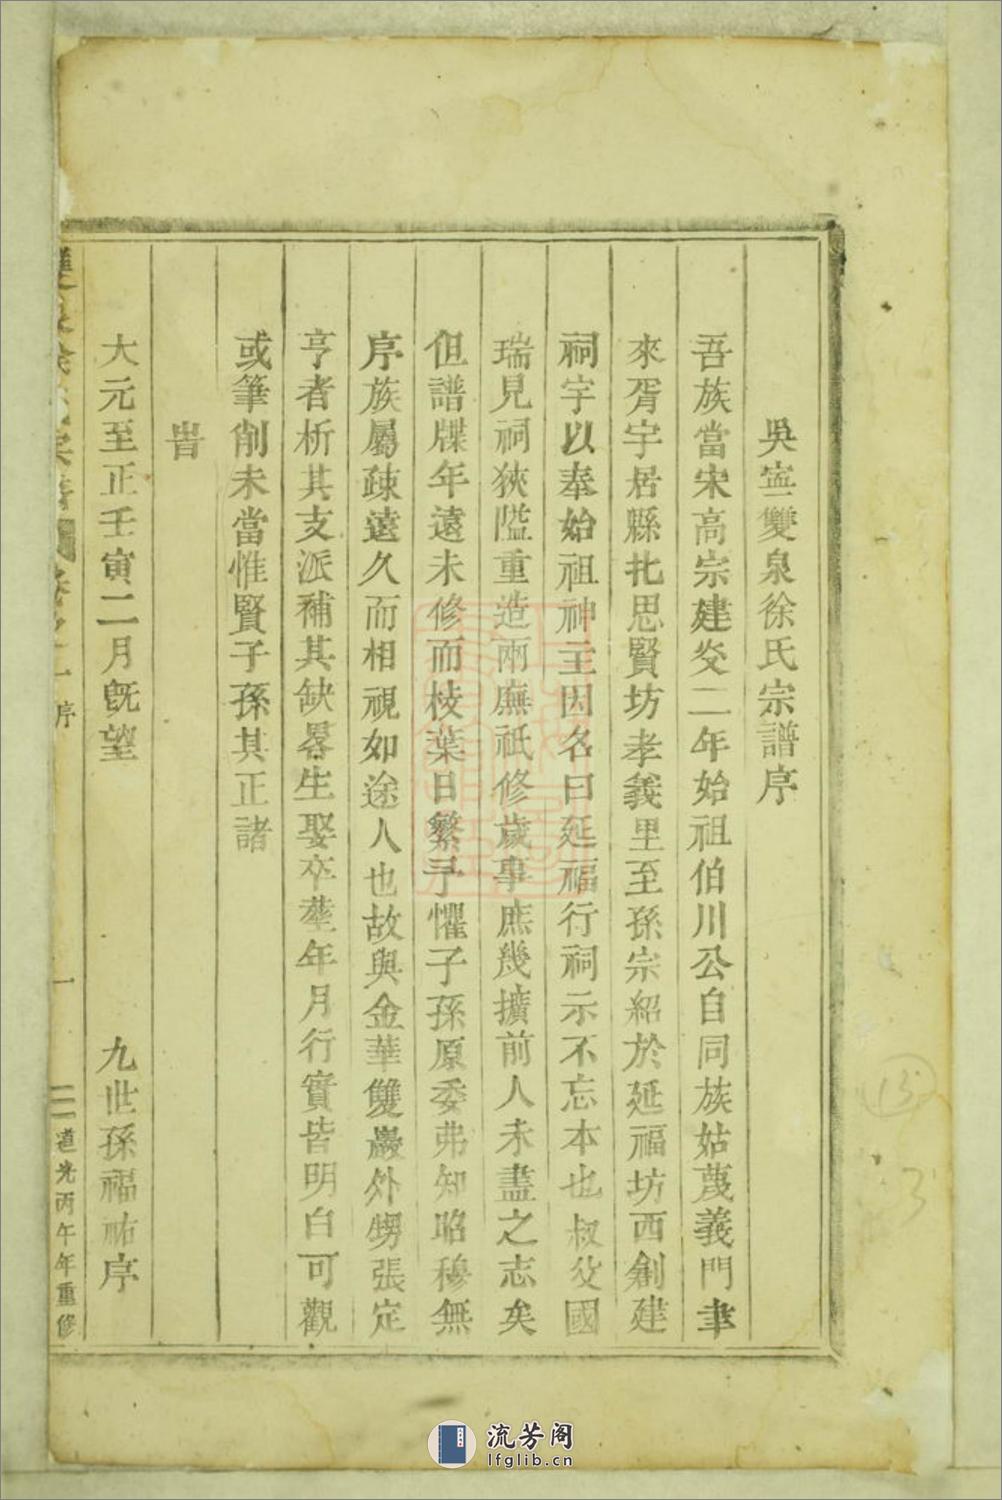 吳寍雙泉徐氏宗譜序
吾族當宋高宗建炎二年始祖伯川公自同族姑蔑義門聿
來胥宇居縣北思賢坊孝義里至孫宗紹於延福坊西創建
祠宇以奉始祖神主因名曰延福行祠示不忘本也叔父國
瑞見祠狹隘重造兩廡祇修歲事庶幾擴前人未盡之志矣
但譜牒年遠未修而枝葉日繁予懼子孫原委弗知昭穆無
序族屬疎遠久而相視如途人也故與金華雙巖外甥張定
亨者析其支派補其缺畧生娶卒塟年月行實皆明白可觀
或筆削未當惟賢子孫其正諸
旹
大元至正壬寅二月旣望 九世孫福祐序
序 道光丙午年重修
流芳阁
lfglib.com